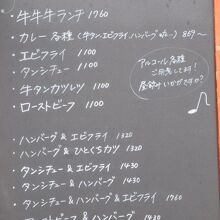 ・牛牛牛ランチ 1760
・カレー各種（牛タン.エビフライ.ハンバーグ etc…）869〜
・エビフライ 1100
・タンシチュー 1100
・牛タンカツレツ 1100
・ローストビーフ 1100
アルコール各種
ご用意します！
昼飲みいかがですか？
・ハンバーグ&エビフライ 1320
・ハンバーグ&ひとくちカツ 1320
・タンシチュー&エビフライ 1430
・タンシチュー&ハンバーグ 1430
・タンシチュー&ハンバーグ&エビフライ 1760
・ローストビーフ&ハンバーグ 1430